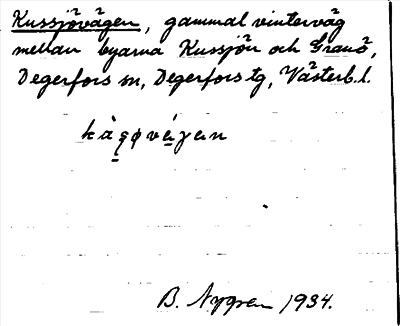 Kussjövägen, gammal vinterväg
mellan byarna Kussjön och Granö,
Degerfors sn, Degerfors tg, Västerb. l.
B. Nygren 1934.